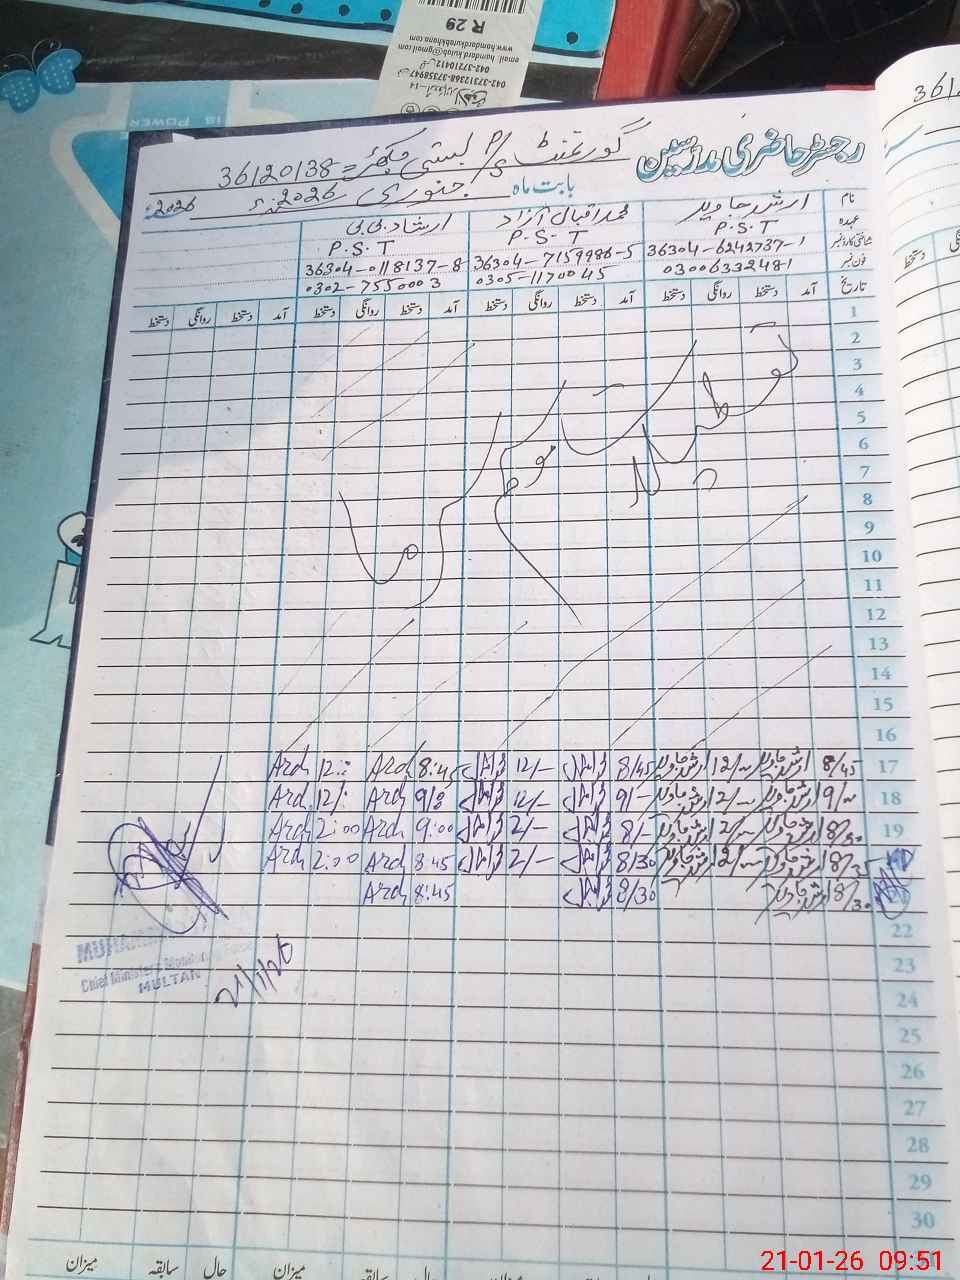 R 29
www.hamdardkutabkhana.com
email: hamdard.kutab@gmail.com
042-37312368-37358947
042-37210412
IS POWER
رجسٹر حاضری مدرسین
گورنمنٹ P/S بستی 36120138 =
بابت ماہ جنوری 2026ء 2026ء
نام ارشد جاوید محمد اقبال آزاد ارشاد بی بی
عہدہ P.S.T P.S.T P.S.T
شناختی کارڈ نمبر 36304-6242737-1 36304-7159986-5 36304-0118137-8
فون نمبر 03006332481 0305-1170045 0302-7550003
تاریخ آمد دستخط روانگی دستخط آمد دستخط روانگی دستخط آمد دستخط روانگی دستخط آمد دستخط روانگی دستخط
1
2
3
4
5
6
7
8
9
10
11
12
13
14
15
16
تعطیلات موسم سرما
17 8/45 ارشد جاوید 12/~ ارشد جاوید 8/45 12/- 8:45 Arch 12:: Arch
18 9/~ ارشد جاوید 12/~ ارشد جاوید 9/- 12/- 9/: Arch 12/: Arch
19 8/30 ارشد جاوید 2/~ ارشد جاوید 8/- 2/- 9:00 Arch 2:00 Arch
8/35 ارشد جاوید 12/~ ارشد جاوید 8/30 2/- 8:45 Arch 2:00 Arch
8/30 ارشد جاوید 8/30 8:45 Arch
22
23
24
25
26
27
28
29
30
MUHAMMAD
Chief Minister's Monitoring Force
MULTAN
21/1/26
میزان سابقہ حال میزان سابقہ حال میزان
دستخط
21-01-26 09:51